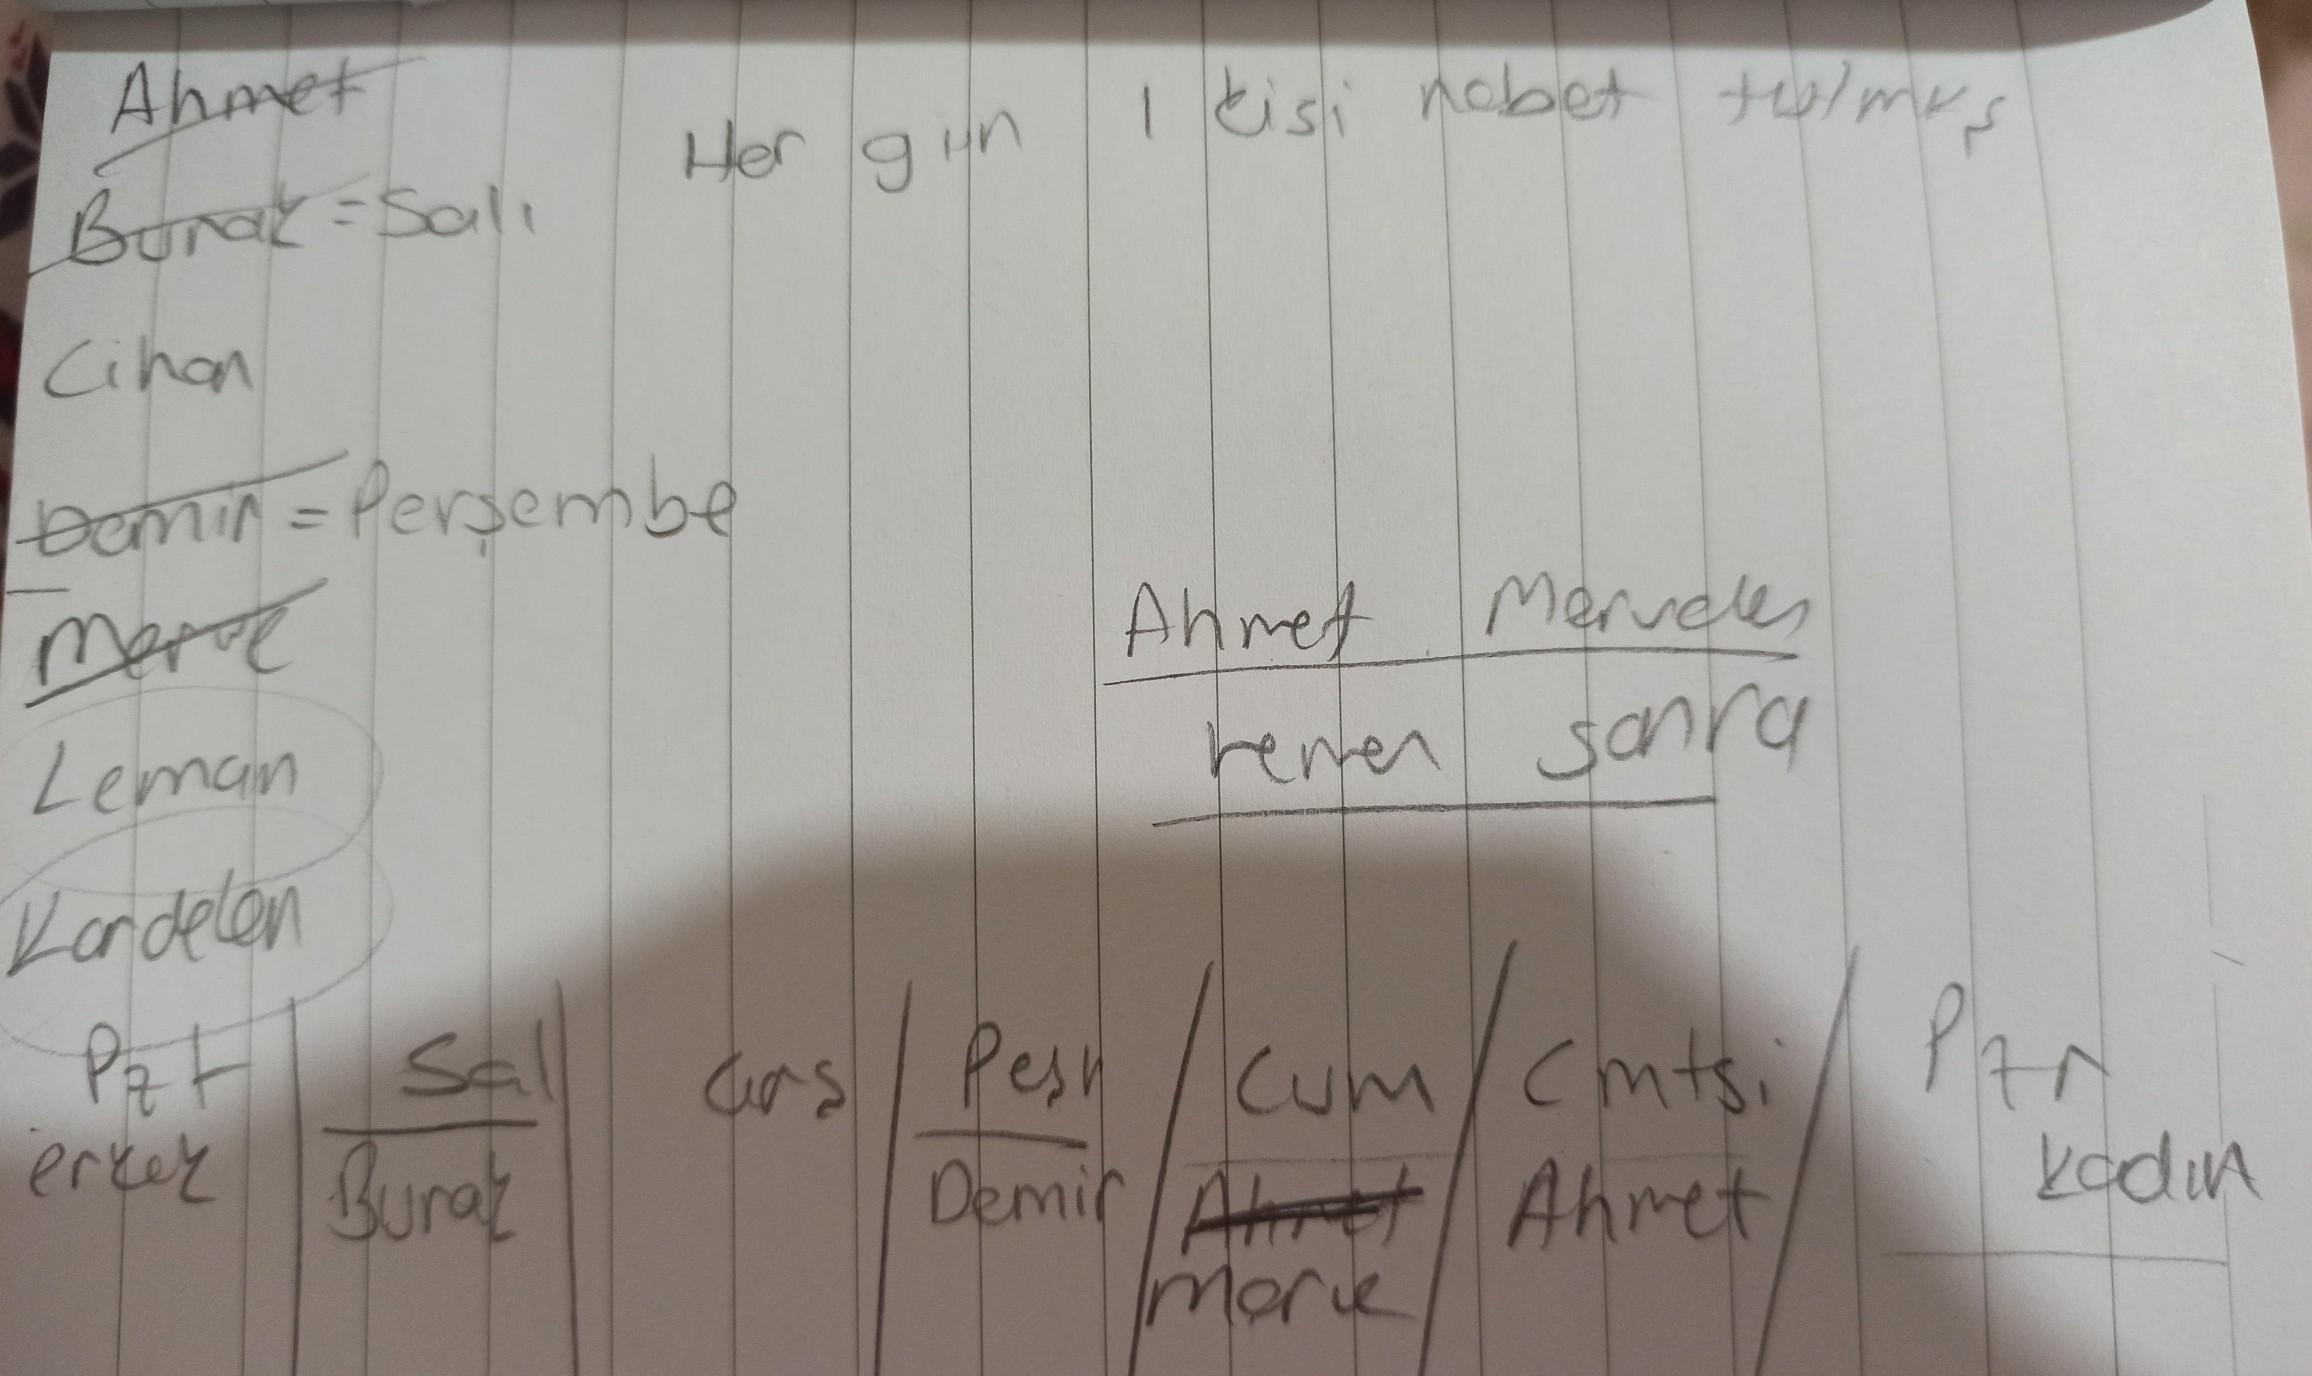 Ahmet
Her gün 1 kişi nöbet tutmuş
Burak = Salı
Cihan
Demir = Perşembe
Merve
Ahmet Merveden
hemen sonra
Leman
Kardelen
Pzt | Sal | Çarş / Perş / Cum / Cmtsi / Pzr
erkek Burak Demir Ahmet Ahmet kadın
Merve